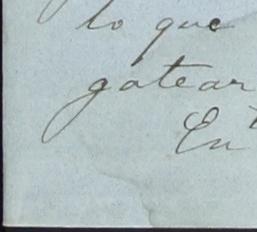 lo que
gatear
En